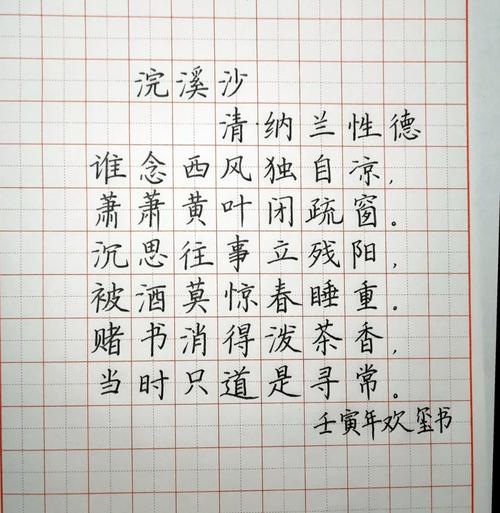 浣溪沙
清·纳兰性德
谁念西风独自凉,
萧萧黄叶闭疏窗。
沉思往事立残阳,
被酒莫惊春睡重。
赌书消得泼茶香,
当时只道是寻常。
壬寅年欢玺书